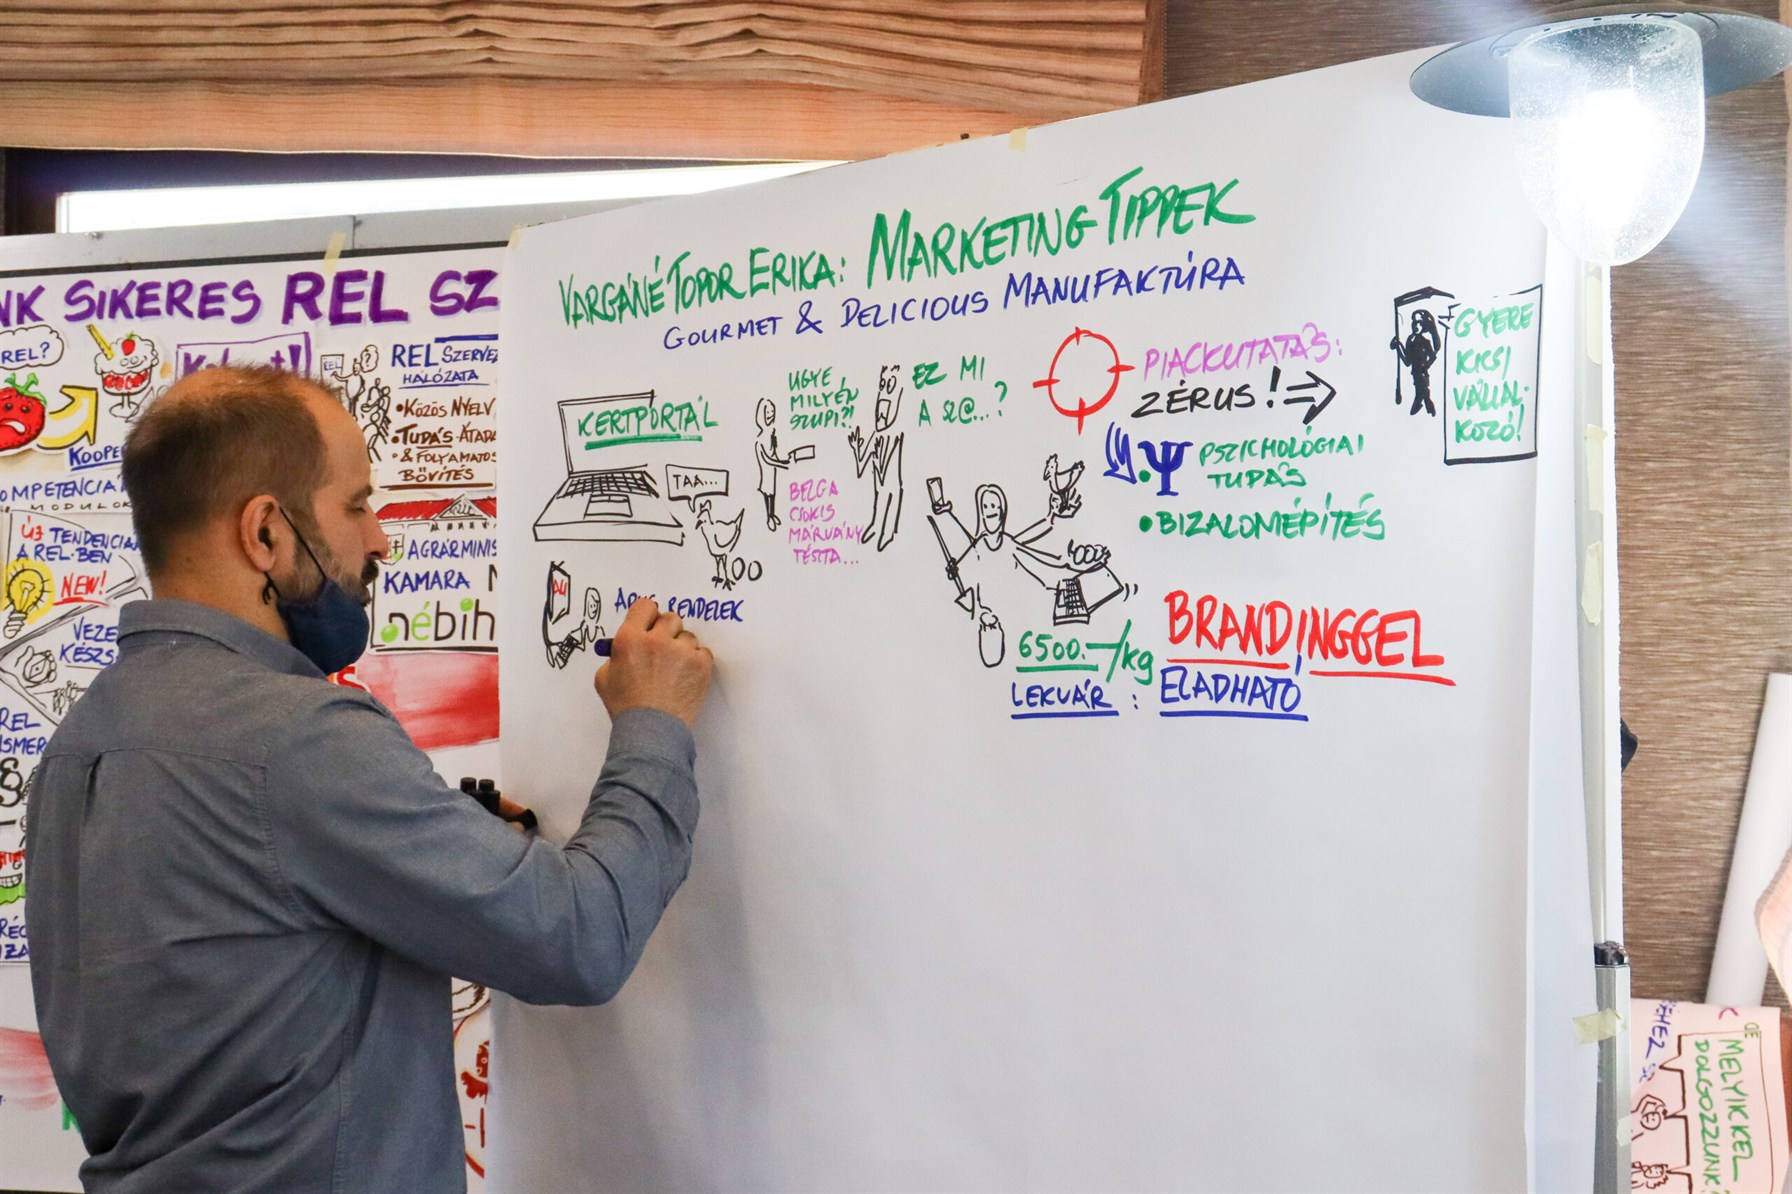 NK SIKERES REL SZ
REL?
REL SZERVEZ
HÁLÓZATA
• KÖZÖS NYELV
• TUDÁS-ÁTADÁ
• & FOLYAMATOS
BŐVÍTÉS
KOOPE
OMPETENCIA
MODULOK
ÚJ TENDENCIÁ
A REL-BEN
NEW!
AGRÁRMINIS
KAMARA
nébih
VEZE
KÉSZS
REL
ISMER
VARGÁNÉ TOPOR ERIKA: MARKETING TIPPEK
GOURMET & DELICIOUS MANUFAKTÚRA
KERTPORTÁL
TAA...
UGYE,
MILYEN
SZUPI?!
EZ MI
A SZ@...?
BELGA
CSOKIS
MÁRVÁNY
TÉSZTA...
PIACKUTATÁS:
ZÉRUS! ⇒
GYERE
KICSI
VÁLLAL-
KOZÓ!
• Ψ PSZICHOLÓGIAI
TUDÁS
• BIZALOMÉPÍTÉS
RENDELEK
6500.-/kg
LEKVÁR : ELADHATÓ
BRANDINGGEL
MELYIKKEL
DOLGOZZUNK